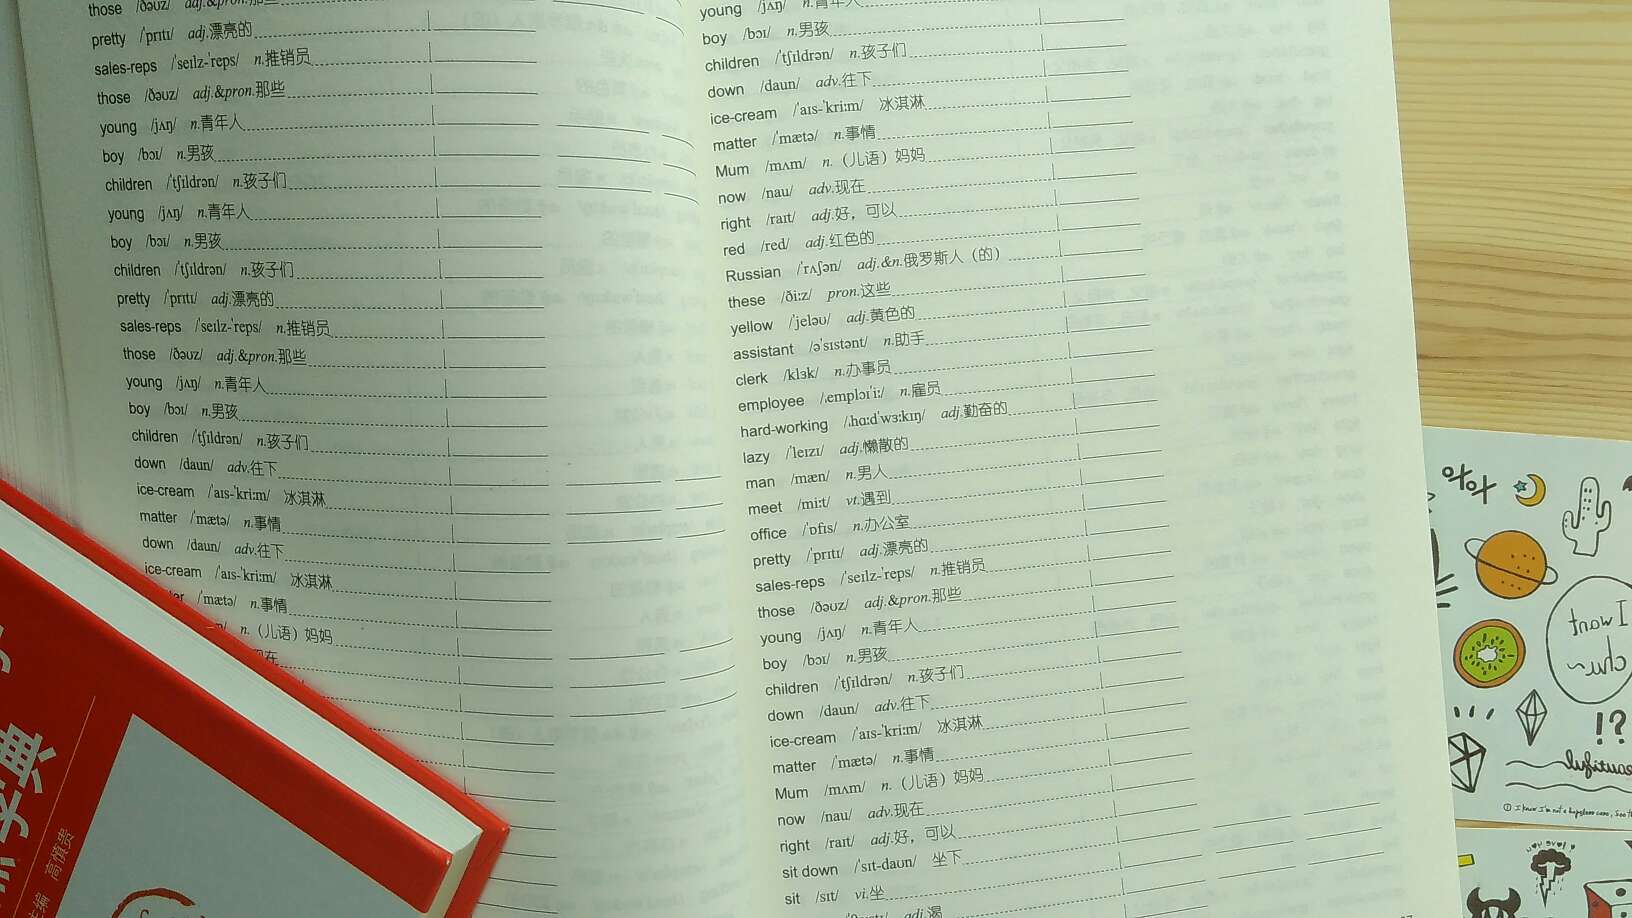 those /ðəuz/ adj.&pron.那些
pretty /ˈprɪtɪ/ adj.漂亮的
sales-reps /ˈseɪlz-ˈreps/ n.推销员
those /ðəuz/ adj.&pron.那些
young /jʌŋ/ n.青年人
boy /bɔɪ/ n.男孩
children /ˈtʃɪldrən/ n.孩子们
young /jʌŋ/ n.青年人
boy /bɔɪ/ n.男孩
children /ˈtʃɪldrən/ n.孩子们
pretty /ˈprɪtɪ/ adj.漂亮的
sales-reps /ˈseɪlz-ˈreps/ n.推销员
those /ðəuz/ adj.&pron.那些
young /jʌŋ/ n.青年人
boy /bɔɪ/ n.男孩
children /ˈtʃɪldrən/ n.孩子们
down /daun/ adv.往下
ice-cream /ˈaɪs-ˈkriːm/ 冰淇淋
matter /ˈmætə/ n.事情
down /daun/ adv.往下
ice-cream /ˈaɪs-ˈkriːm/ 冰淇淋
/ˈmætə/ n.事情
n.（儿语）妈妈
现在
young /jʌŋ/ n.青年人
boy /bɔɪ/ n.男孩
children /ˈtʃɪldrən/ n.孩子们
down /daun/ adv.往下
ice-cream /ˈaɪs-ˈkriːm/ 冰淇淋
matter /ˈmætə/ n.事情
Mum /mʌm/ n.（儿语）妈妈
now /nau/ adv.现在
right /raɪt/ adj.好，可以
red /red/ adj.红色的
Russian /ˈrʌʃən/ adj.&n.俄罗斯人（的）
these /ðiːz/ pron.这些
yellow /ˈjeləu/ adj.黄色的
assistant /əˈsɪstənt/ n.助手
clerk /klɜk/ n.办事员
employee /ˌemplɔɪˈiː/ n.雇员
hard-working /ˌhɑːdˈwɜːkɪŋ/ adj.勤奋的
lazy /ˈleɪzɪ/ adj.懒散的
man /mæn/ n.男人
meet /miːt/ vt.遇到
office /ˈɒfɪs/ n.办公室
pretty /ˈprɪtɪ/ adj.漂亮的
sales-reps /ˈseɪlz-ˈreps/ n.推销员
those /ðəuz/ adj.&pron.那些
young /jʌŋ/ n.青年人
boy /bɔɪ/ n.男孩
children /ˈtʃɪldrən/ n.孩子们
down /daun/ adv.往下
ice-cream /ˈaɪs-ˈkriːm/ 冰淇淋
matter /ˈmætə/ n.事情
Mum /mʌm/ n.（儿语）妈妈
now /nau/ adv.现在
right /raɪt/ adj.好，可以
sit down /ˈsɪt-daun/ 坐下
sit /sɪt/ vi.坐
adj.渴
主编 高慎贵
I want
!?